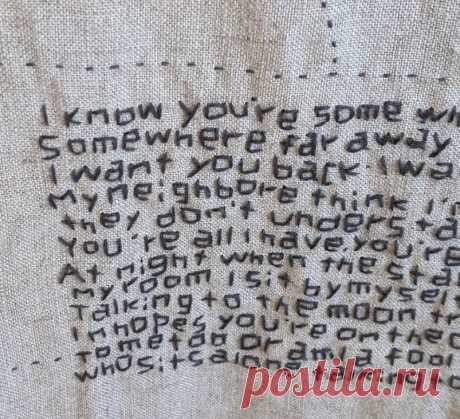 I know you're some wh
Somewhere far away
I want you back I wa
My neighbore think I'm
they don't understa
You're all I have. you're
At night when the sta
My room I sit by mysel
Talking to the moon tr
In hopes you're on the o
to me tab or am a fool
who sits alone talking to
postila.ru